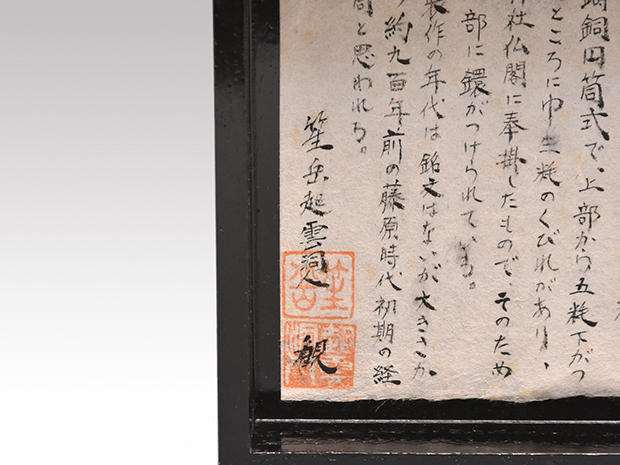 銅円筒式で、上部から五粍下がつ
ところに巾三粍のくびれがあり、
社仏閣に奉掛したもので、そのため
部に鐶がつけられている。
製作の年代は銘文はないが大きさか
約九百年前の藤原時代初期の経
筒と思われる。
笙岳起雲洞人 観